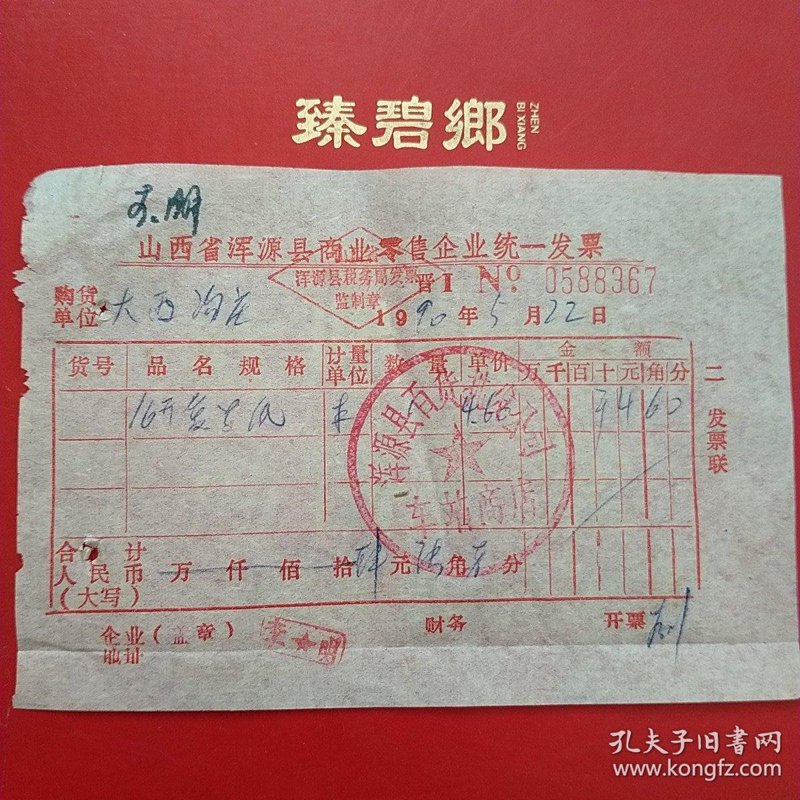 臻碧鄉
ZHEN
BI XIANG
山西省浑源县商业零售企业统一发票
浑源县税务局发票
监制章
晋I No 0588367
购货
单位
1990年5月22日
货号 品名规格 计量单位 数量 单价 金额
万千百十元角分
16开复写纸 4.60 ¥460
浑源县百货公司
车站商店
二 发票联
合计
人民币 万仟佰拾肆元陆角零分
(大写)
企业(盖章)
地址
财务
开票
孔夫子旧书网
www.kongfz.com